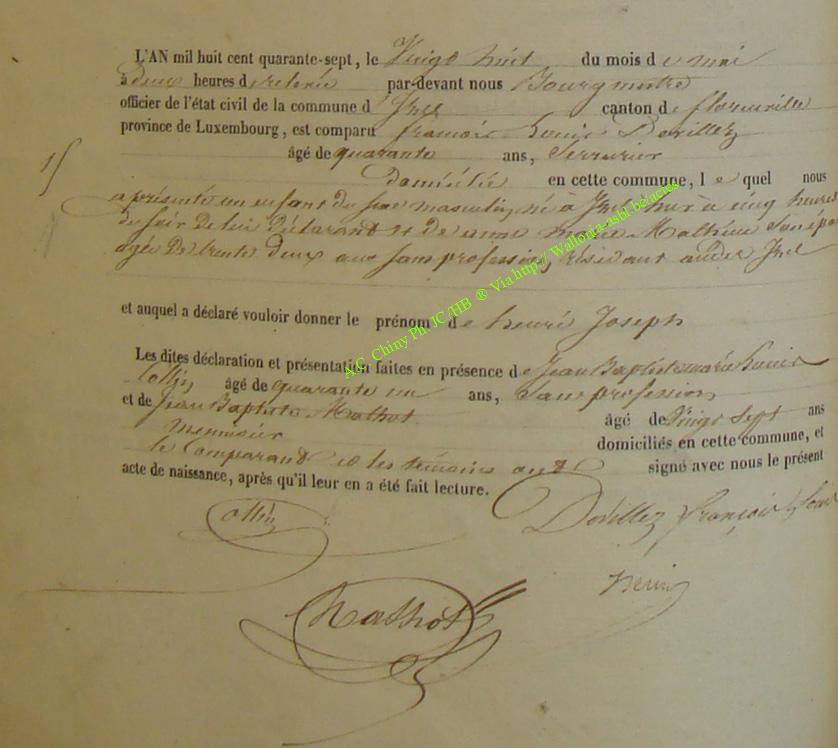 L'AN mil huit cent quarante-sept, le Vingt huit du mois de mai
à deux heures de relevée par-devant nous Bourgmestre
officier de l'état civil de la commune d'Izel canton de florenville
province de Luxembourg, est comparu françois Louis Devillez
âgé de quarante ans, Serrurier
15
domicilié en cette commune, lequel nous
a présenté un enfant du sexe masculin, né à Izel hier à cinq heures
du soir de lui déclarant et de Mathieu Son
agée de trente deux ans sans profession, résidant audit Izel
et auquel a déclaré vouloir donner le prénom de henri Joseph
Les dites déclaration et présentation faites en présence de Jean Baptiste
Collin âgé de quarante un ans, Sans profession
et de Jean Baptiste Mathot âgé de Vingt Sept ans
Menuisier domiciliés en cette commune, et
le Comparant et les témoins ont signé avec nous le présent
acte de naissance, après qu'il leur en a été fait lecture.
Collin Devillez françois Louis
Mathot
A.C. Chiny Ph JC/HB ® Via http://Wallonia-asbl.be/actes